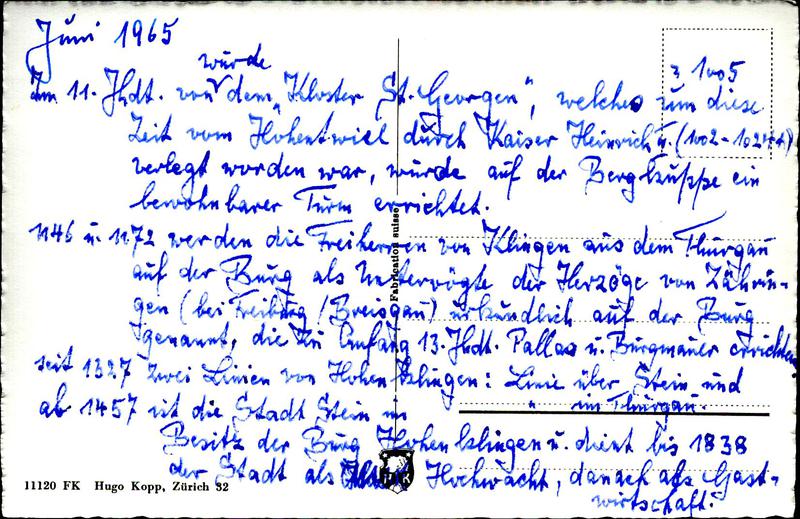 Juni 1965
wurde
± 1005
Im 11. Jhdt. von dem "Kloster St. Georgen", welches um diese
Zeit vom Hohentwiel durch Kaiser Heinrich II. (1002-1024 †)
verlegt worden war, wurde auf der Bergkuppe ein
bewohnbarer Turm errichtet.
1146 u. 1172 werden die Freiherren von Klingen aus dem Thurgau
auf der Burg als Untervögte der Herzöge von Zährin-
gen (bei Freiburg / Breisgau) urkundlich auf der Burg
genannt, die zu Anfang 13. Jhdt. Pallas u. Burgmauer errichten
seit 1327 zwei Linien von Hohenklingen: Linie über Stein und
" im Thurgau.
ab 1457 ist die Stadt Stein im
Besitz der Burg Hohenklingen u. dient bis 1838
der Stadt als Hochwacht, danach als Gast-
wirtschaft.
Fabrication suisse
11120 FK Hugo Kopp, Zürich 32